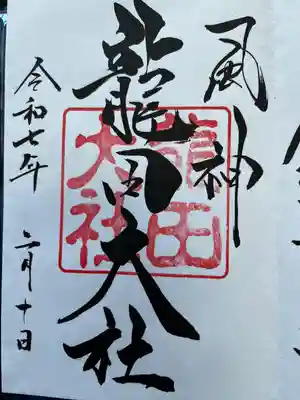 風神
龍田大社
龍田
大社
令和七年
二月十日